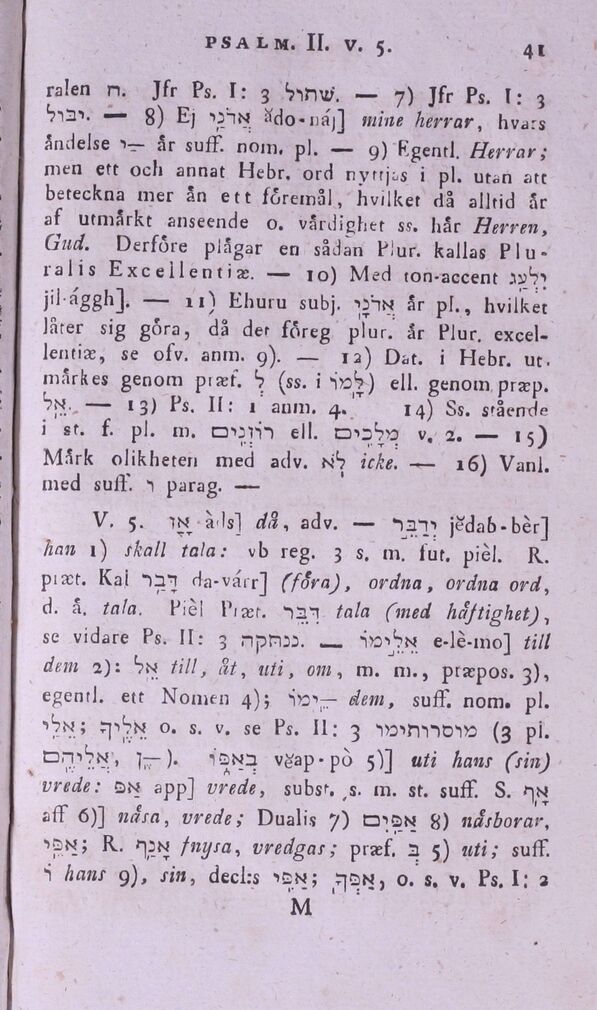 PSALM. II. v. 5. 41
ralen ח. Jfr Ps. I: 3 שתול. — 7) Jfr Ps. I: 3
יבול. — 8) Ej אֲדֹנַי ădo-náj] mine herrar, hvars
åndelse ־ַי år suff. nom. pl. — 9) Egentl. Herrar;
men ett och annat Hebr. ord nyttjas i pl. utan att
beteckna mer ån ett föremål, hvilket då alltid år
af utmårkt anseende o. vårdighet ss. hår Herren,
Gud. Derföre plågar en sådan Plur. kallas Plu-
ralis Excellentiæ. — 10) Med ton-accent יִלְעַג
jil-ággh]. — 11) Ehuru subj. אֲדֹנָי år pl., hvilket
låter sig göra, då det föreg. plur. år Plur. excel-
lentiæ, se ofv. anm. 9). — 12) Dat. i Hebr. ut-
mårkes genom præf. לְ (ss. i לָמוֹ) ell. genom præp.
אֶל. — 13) Ps. II: 1 anm. 4. 14) Ss. stående
i st. f. pl. m. רוֹזְנִים ell. מְלָכִים v. 2. — 15)
Mårk olikheten med adv. לֹא icke. — 16) Vanl.
med suff. ו parag. —
V. 5. אָז àds] då, adv. — יְדַבֵּר jĕdab-bèr]
han 1) skall tala: vb reg. 3 s. m. fut. pièl. R.
præt. Kal דָּבַר da-várr] (föra), ordna, ordna ord,
d. å. tala. Pièl Præt. דִּבֵּר tala (med håftighet),
se vidare Ps. II: 3 ננתקה. — אֵלֵימוֹ e-lè-mo] till
dem 2): אֶל till, åt, uti, om, m. m., præpos. 3),
egentl. ett Nomen 4); ־ֵימוֹ dem, suff. nom. pl.
אֵלַי; אֵלֶיךָ o. s. v. se Ps. II: 3 מוסרותימו (3 pl.
אֲלֵיהֶם, ־ֶן). בְאַפּוֹ vĕap-pò 5)] uti hans (sin)
vrede: אַפ app] vrede, subst. s. m. st. suff. S. אַף
aff 6)] nåsa, vrede; Dualis 7) אַפַּיִם 8) nåsborar,
אַפַּי; R. אָנַף fnysa, vredgas; præf. בְּ 5) uti; suff.
וֹ hans 9), sin, decl.: אַפִּי; אַפְּךָ, o. s. v. Ps. I: 2
M